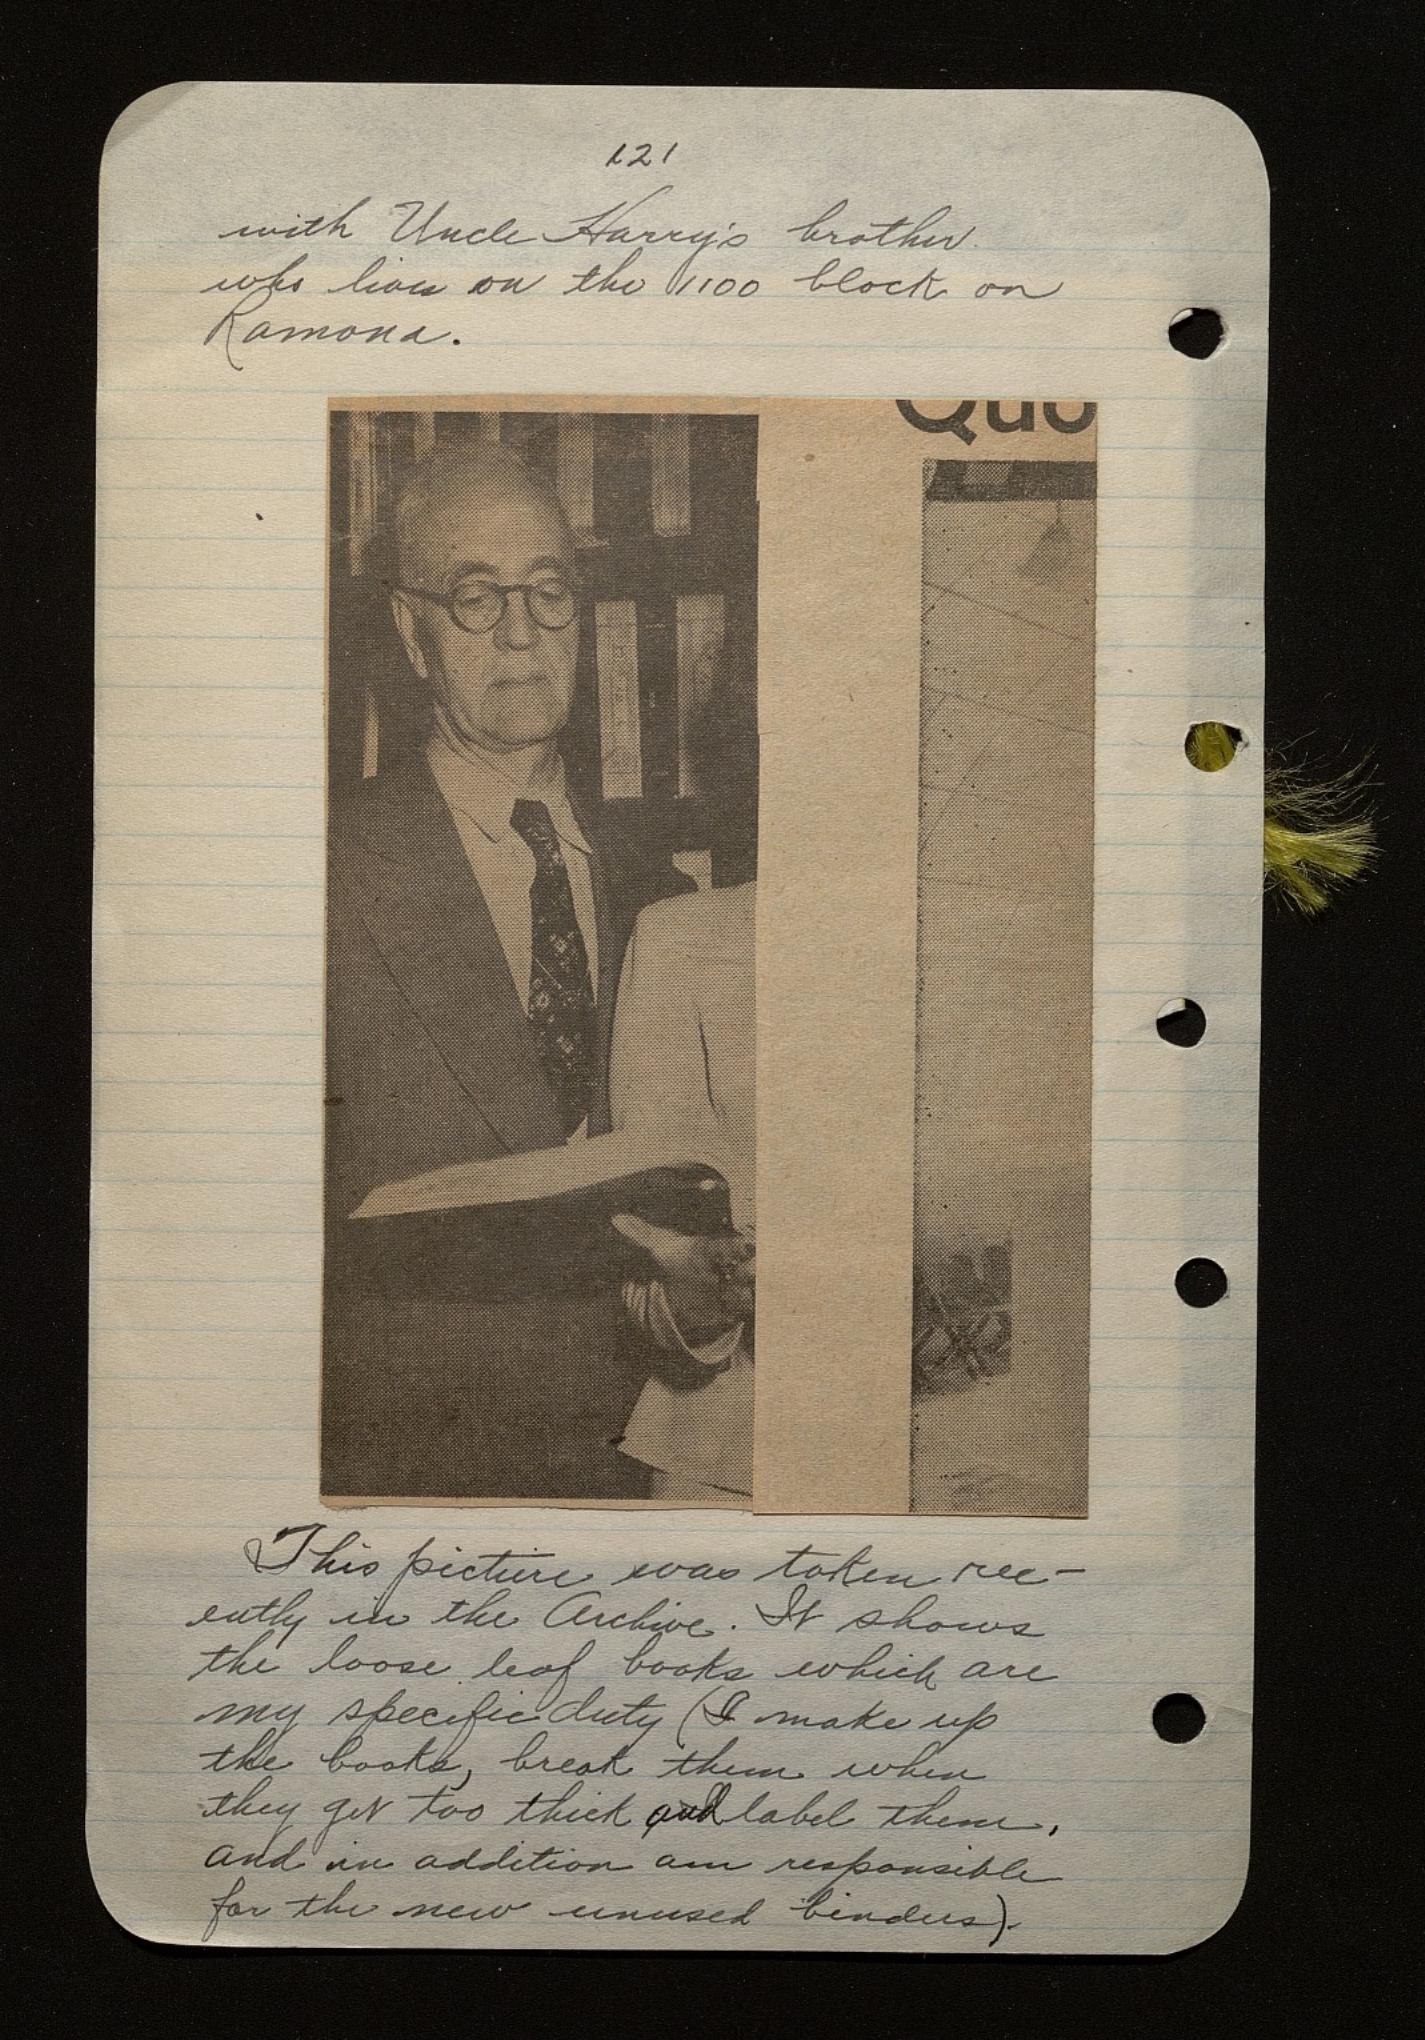 121
with Uncle Harry's brother
who lives on the 1100 block on
Ramona.
Quo
This picture was taken rec-
ently in the Archive. It shows
the loose leaf books which are
my specific duty (I make up
the books, break them when
they get too thick and label them,
and in addition am responsible
for the new unused binders).